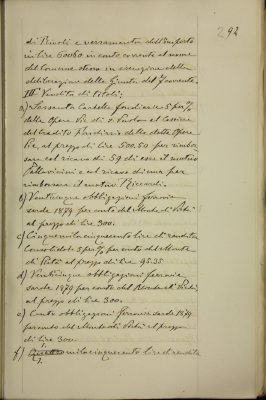 292
di Rivoli e versamento dell'importo
in lire 50060 in conto corrente al nome
del Comune stesso in esecuzione della
deliberazione della Giunta del
IV° Vendita di titoli;
a) Sessanta Cartelle fondiarie 5 per %
delle Opere Pie di S. Paolo al Cassiere
del Credito fondiario delle dette Opere
Pie, al prezzo di lire 500.50 per
sare col ricavo di 59 di esse il mutuo
Pallavicini e col ricavo di una per
rimborsare il mutuo Riccardi.
b) Venticinque obbligazioni ferrovie
sarde 1879 per conto del Monte di Pietà
al prezzo di lire 300.
c) Cinquemilacinquecento lire di rendita
Consolidato 5 per % per conto del Monte
di Pietà al prezzo di Lire 95.35
d) Venticinque obbligazioni ferrovie
sarde 1879 per conto del Monte di Pietà,
al prezzo di lire 300.
e) Cento obbligazioni ferrovie sarde 1879
per conto del Monte di Pietà al prezzo
di lire 300.
f) milacinquecento lire di rendita